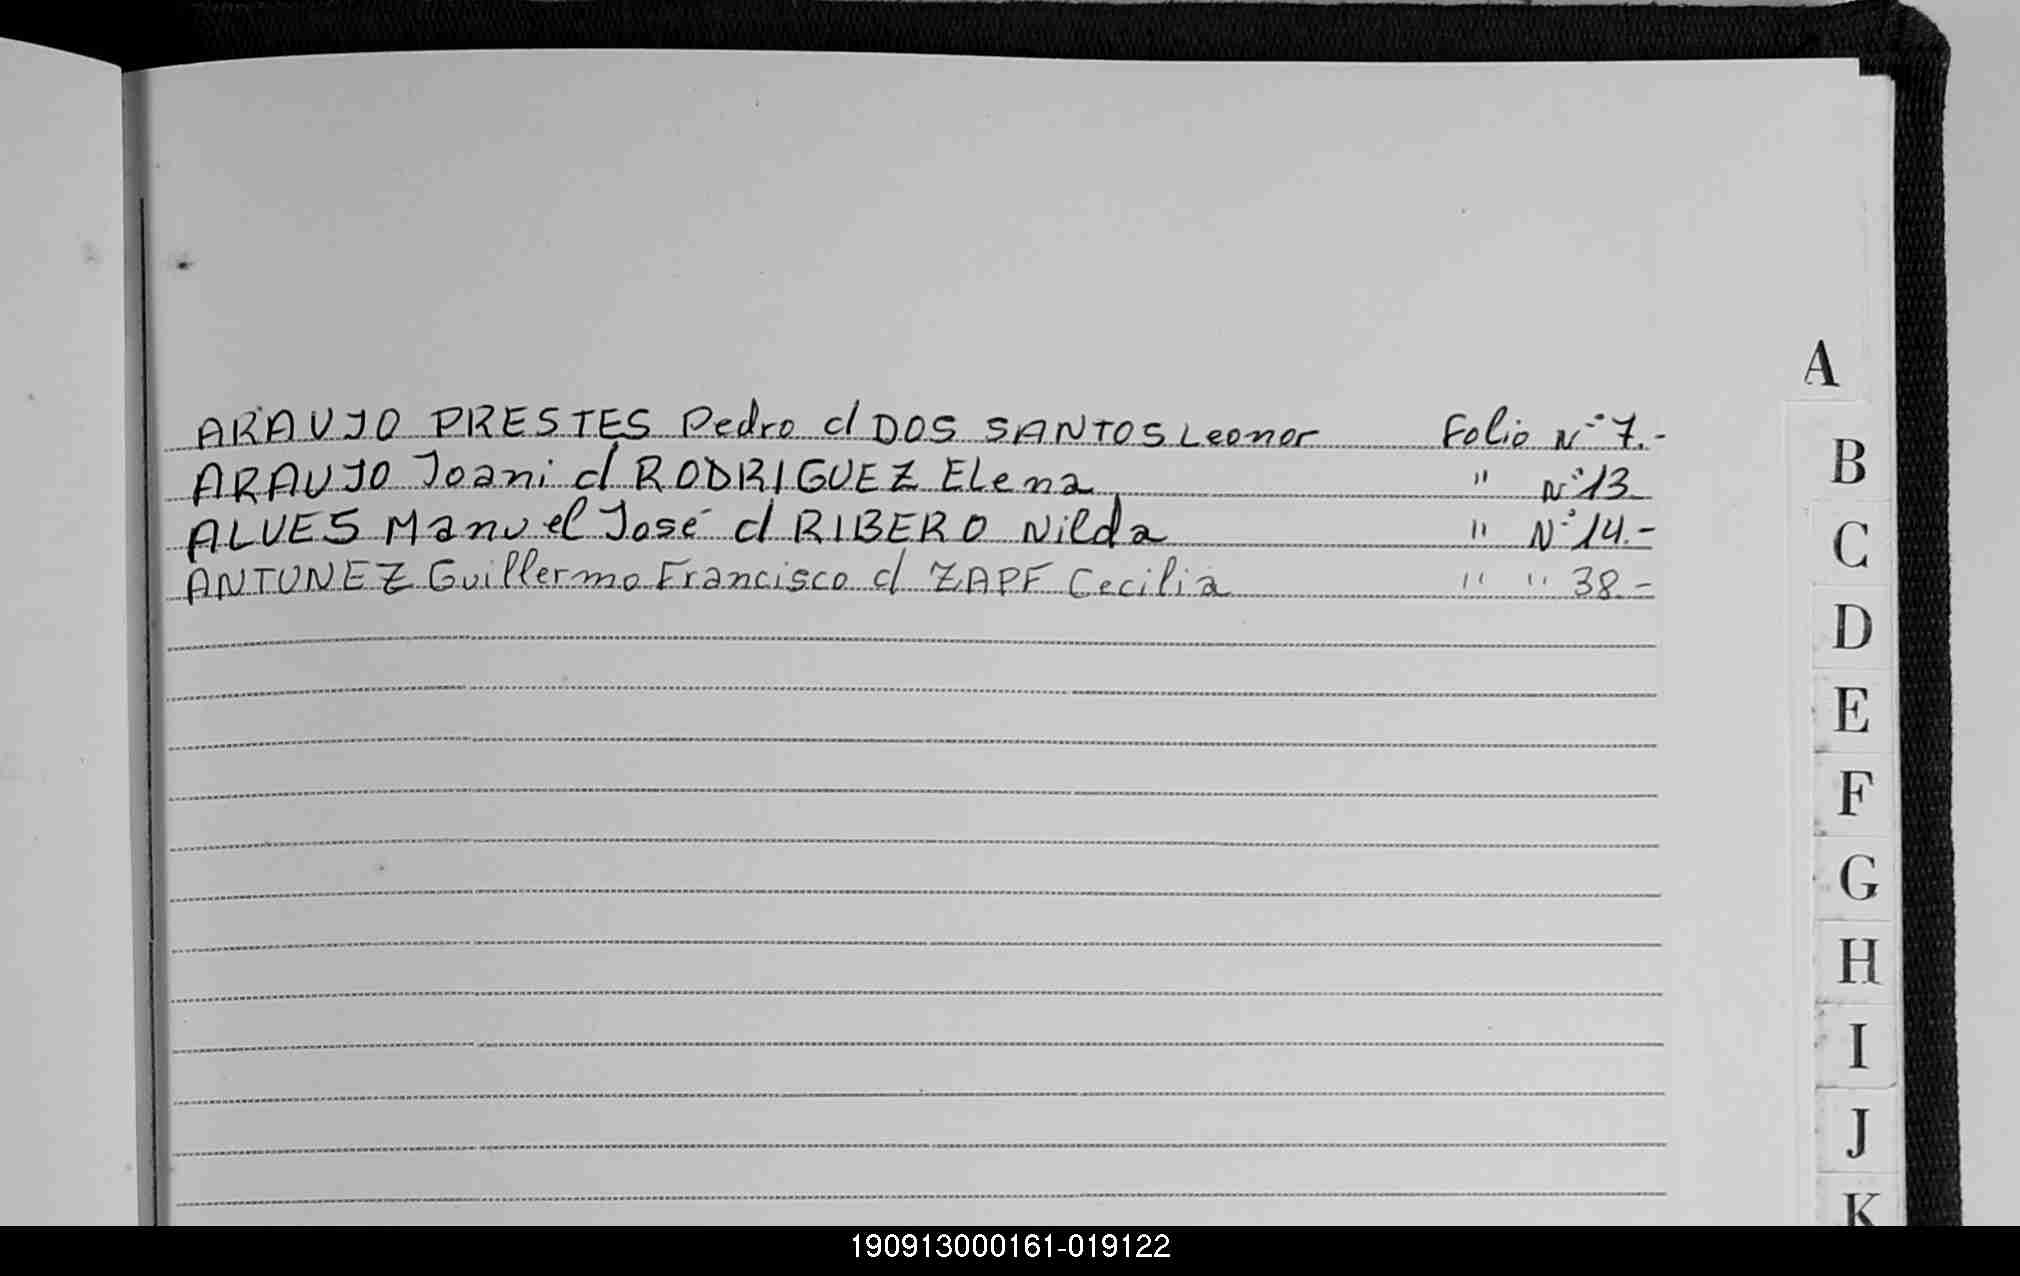 A
ARAUJO PRESTES Pedro c/ DOS SANTOS Leonor Folio Nº 7.-
ARAUJO Joani c/ RODRIGUEZ Elena " Nº 13
ALVES Manuel José c/ RIBERO Nilda " Nº 14.-
ANTUNEZ Guillermo Francisco c/ ZAPF Cecilia " " 38.-
B
C
D
E
F
G
H
I
J
K
190913000161-019122